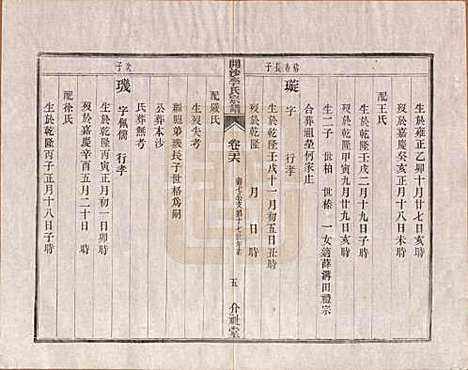 裕南長子
璇
字 行孝
生於雍正乙卯十月廿七日亥時
歿於嘉慶癸亥正月十八日未時
配王氏
生於乾隆壬戌二月十九日子時
歿於乾隆甲寅九月廿九日寅時
生二子 世椿 世榛 一女適薛溝田禮宗
合葬祖塋何家庄
生於乾隆壬戌十一月初五日丑時
歿於乾隆 月 日 時
開沙李氏宗譜
卷六
五 介祉堂
配嚴氏
生歿失考
繼胞弟璣長子世格為嗣
公葬本沙
氏葬無考
次子
璣
字佩儒 行孝
生於乾隆丙寅正月初一日卯時
歿於嘉慶辛酉五月二十日 時
配徐氏
生於乾隆丙子正月十八日子時